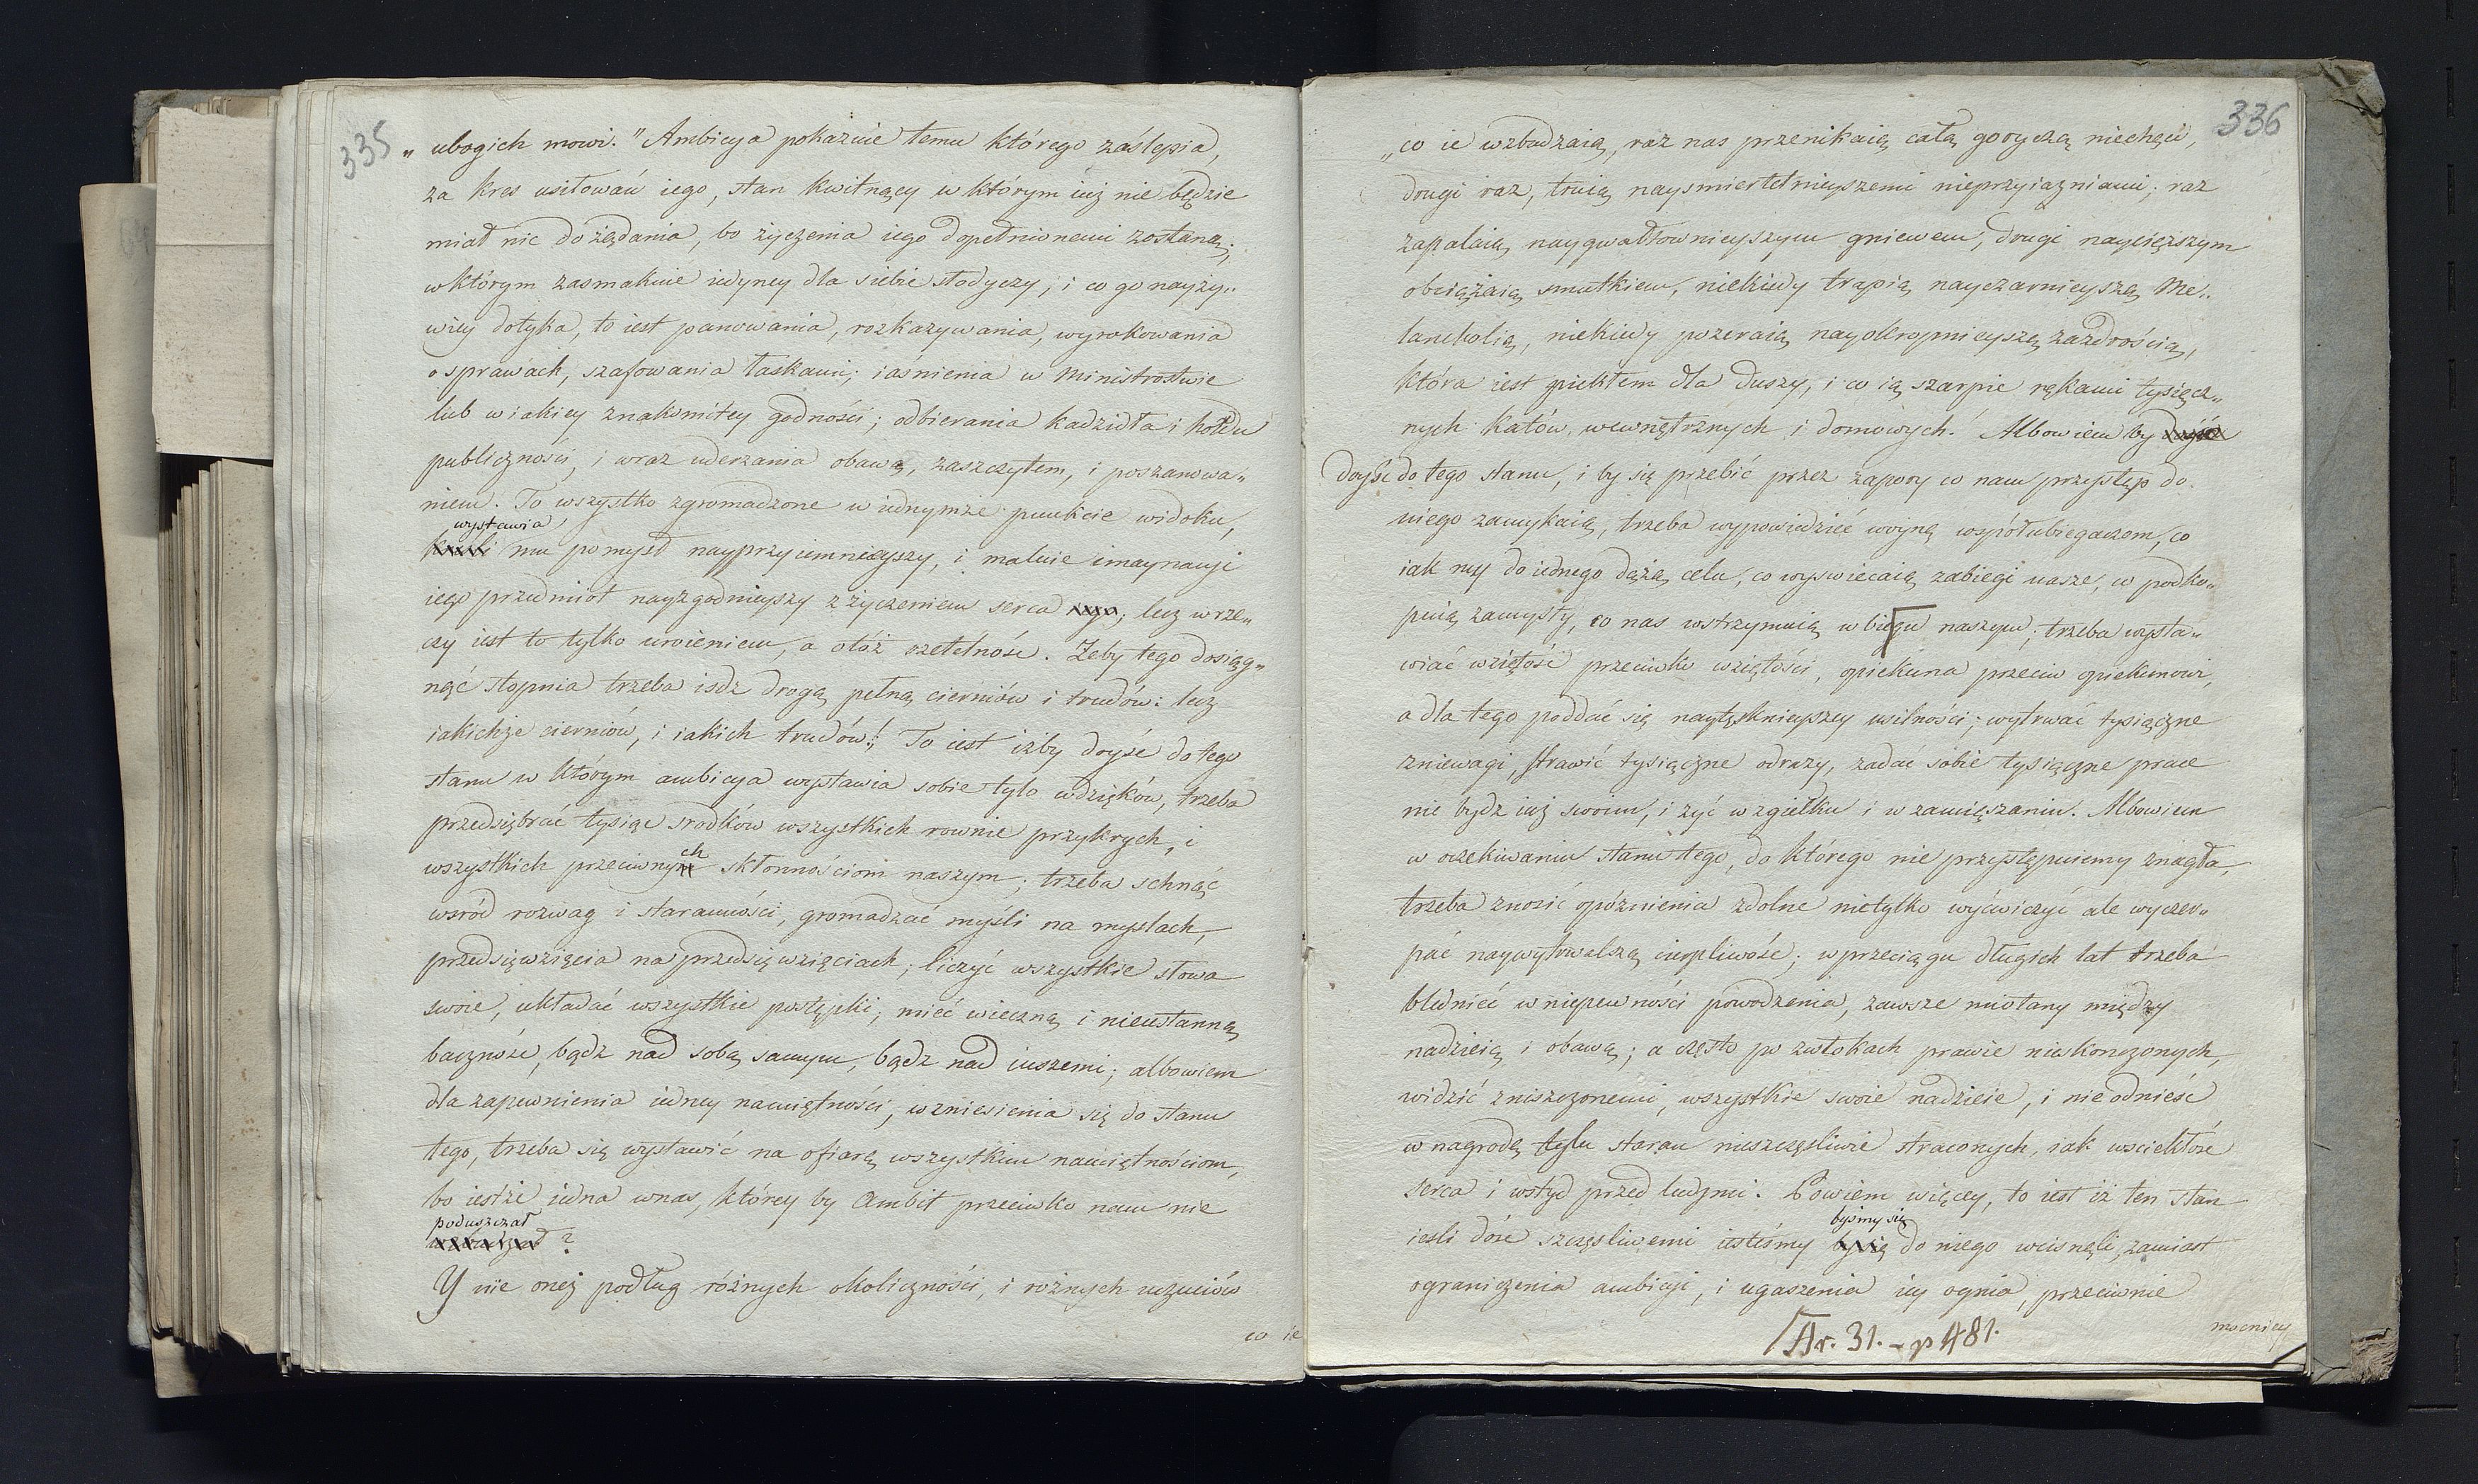 335
„ ubogich mowi." Ambicya pokazuie temu którego zaślepia,
za kres usiłowań iego, stan kwitnący w którym iuż nie będzie
miał nic do żądania, bo życzenia iego dopełnionemi zostaną;
w którym zasmakuie iedyney dla siebie słodyczy, i co go nayży„
wiey dotyka, to iest panowania, rozkazywania, wyrokowania
o sprawach, szafowania łaskami; iaśnienia w Ministrostwie
lub w iakiey znakomitey godności; odbierania kadzidła i hołdu
publiczności, i wraz uderzania obawą, zaszczytem, i poszanowa„
niem. To wszystko zgromadzone w iednymże punkcie widoku,
wystawia
mu pomysł nayprzyiemnieyszy, i maluie imaynacyi
iego przedmiot nayzgodnieyszy z życzeniem serca; lecz w rze„
czy iest to tylko uroieniem, a otóż rzetelność. Żeby tego dosiąg„
nąć stopnia trzeba iśdz drogą pełną cierniów i trudów: lecz
iakichże cierniów, i iakich trudów! To iest iżby doyść do tego
stanu w którym ambicya wystawia sobie tylo wdzięków, trzeba
przedsiębrać tysiąc srodków wszystkich rownie przykrych, i
wszystkich przeciwnych skłonnościom naszym; trzeba schnąć
wsród rozwag i staranności, gromadzać myśli na myslach,
przedsięwzięcia na przedsięwzięciach; liczyć wszystkie słowa
swoie, układać wszystkie postępki; mieć wieczną i nieustanną
baczność, bądz nad sobą samym, bądz nad inszemi; albowiem
dla zapewnienia iedney namiętności, wzniesienia się do stanu
tego, trzeba się wystawić na ofiarę wszystkim namiętnościom,
bo iestże iedna w nas, którey by Ambit przeciwko nam nie
poduszczał
?
Y nie oneż podług różnych okoliczności, i rożnych uczuciów
co ie
336
„co ie wzbudzaią, raz nas przenikaią całą goryczą niechęci,
drugi raz, truią naysmiertelnieyszemi nieprzyiazniami; raz
zapalaią naygwałtownieyszym gniewem, drugi naycięższym
obciążaią smutkiem, niekiedy trapią nayczarnieyszą Me„
lancholią, niekiedy pożeraią nayokropnieyszą zazdrością,
która iest piekłem dla duszy, i co ią szarpie rękami tysiącz„
nych katów wewnętrznych i domowych. Albowiem by
doyść do tego stanu, i by się przebić przez zapory co nam przystęp do
niego zamykaią, trzeba wypowiedzieć woynę wspołubiegaczom, co
iak my do iednego dążą celu, co wyswiecaią zabiegi nasze, co podko„
puią zamysły, co nas wstrzymuią w biegu naszym; trzeba wysta„
wiać wziętość przeciwko wziętości, opiekuna przeciw opiekunowi,
a dla tego poddać się naytęsknieyszey usilności; wytrwać tysiączne
zniewagi, strawić tysiączne odrazy, zadać sobie tysiączne prace
nie bydz iuż swoim, i żyć w zgiełku i w zamięszaniu. Albowiem
w oczekiwaniu stanu tego, do którego nie przystępuiemy znagła,
trzeba znosić opóźnienia zdolne nietylko wyćwiczyć ale wyczer„
pać naywytrwalszą cierpliwość; w przeciągu długich lat trzeba
blednieć w niepewności powodzenia, zawsze miotany między
nadzieią i obawą; a często po zwłokach prawie nieskonczonych,
widzieć zniszczonemi, wszystkie swoie nadzieie, i nie odnieść
w nagrodę tylu staran nieszczęsliwie straconych, iak wsciekłość
serca i wstyd przed ludzmi. Powiem więcey, to iest iż ten stan
byśmy się
iesli dość szczęsliwemi iesteśmy do niego wcisneli, zamiast
ograniczenia ambicyi, i ugaszenia iey ognia, przeciwnie
mocniey
Ar. 31. – p 481.